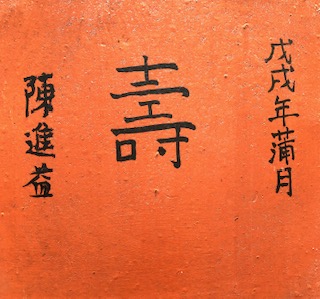 戊戌年蒲月
壽
陳進益